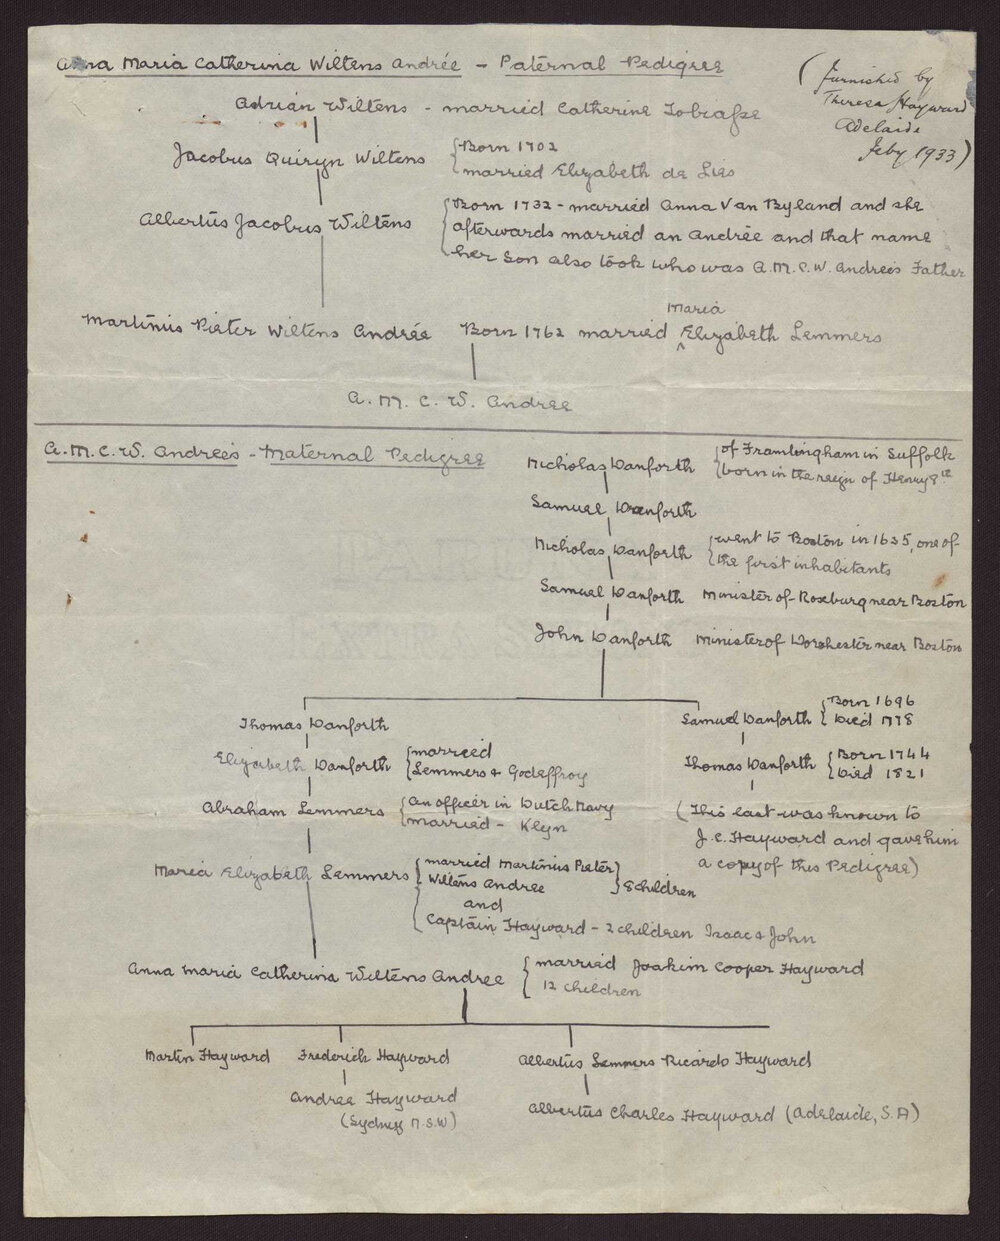 Anna Maria Catherina Wiltens Andrée - Paternal Pedigree
(Furnished by
Theresa Hayward
Adelaide
Feby 1933)
Adrian Wiltens - married Catherine Tobiasse
Jacobus Quiryn Wiltens { Born 1702
married Elizabeth de Lies
Albertus Jacobus Wiltens { Born 1732 - married Anna Van Byland and she
afterwards married an Andrée and that name
her son also took who was A.M.C.W. Andree's Father
Maria
Martinus Pieter Wiltens Andrée Born 1762 married ^ Elizabeth Lemmers
A. M. C. W. Andree
A.M.C.W. Andree's - Maternal Pedigree
Nicholas Danforth { of Framlingham in Suffolk
born in the reign of Henry 8th
Samuel Danforth
Nicholas Danforth { went to Boston in 1635, one of
the first inhabitants
Samuel Danforth Minister of Roxburg near Boston
John Danforth Minister of Dorchester near Boston
Thomas Danforth
Samuel Danforth { Born 1696
Died 1778
Elizabeth Danforth { married
Lemmers & Godeffroy
Thomas Danforth { Born 1744
Died 1821
Abraham Lemmers { An officer in Dutch Navy
married - Klyn
(This last was known to
J.C. Hayward and gave him
a copy of this Pedigree)
Maria Elizabeth Lemmers { married Martinius Pieter
Wiltens Andree } 8 children
and
Captain Hayward - 2 children Isaac & John
Anna Maria Catherina Wiltens Andree { married Joakim Cooper Hayward
12 children
Martin Hayward Frederick Hayward Albertus Lemmers Ricardo Hayward
Andree Hayward
(Sydney N.S.W)
Albertus Charles Hayward (Adelaide, S.A)